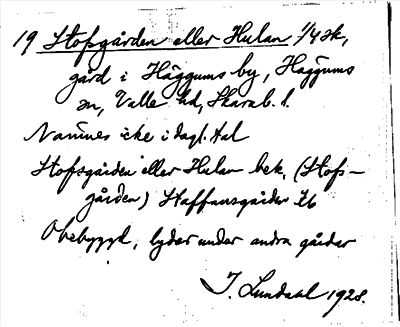 19 Stofsgården eller Hulan 1/4 sk,
gård i Häggums by, Häggums
sn, Valle hd, Skarab. l.
Nämnes icke i dagl. tal
Stofsgården eller Hulan bek. (Stofs-
gården) Staffansgården Eb
Obebyggd, lyder under andra gårdar
J. Lundahl 1928.